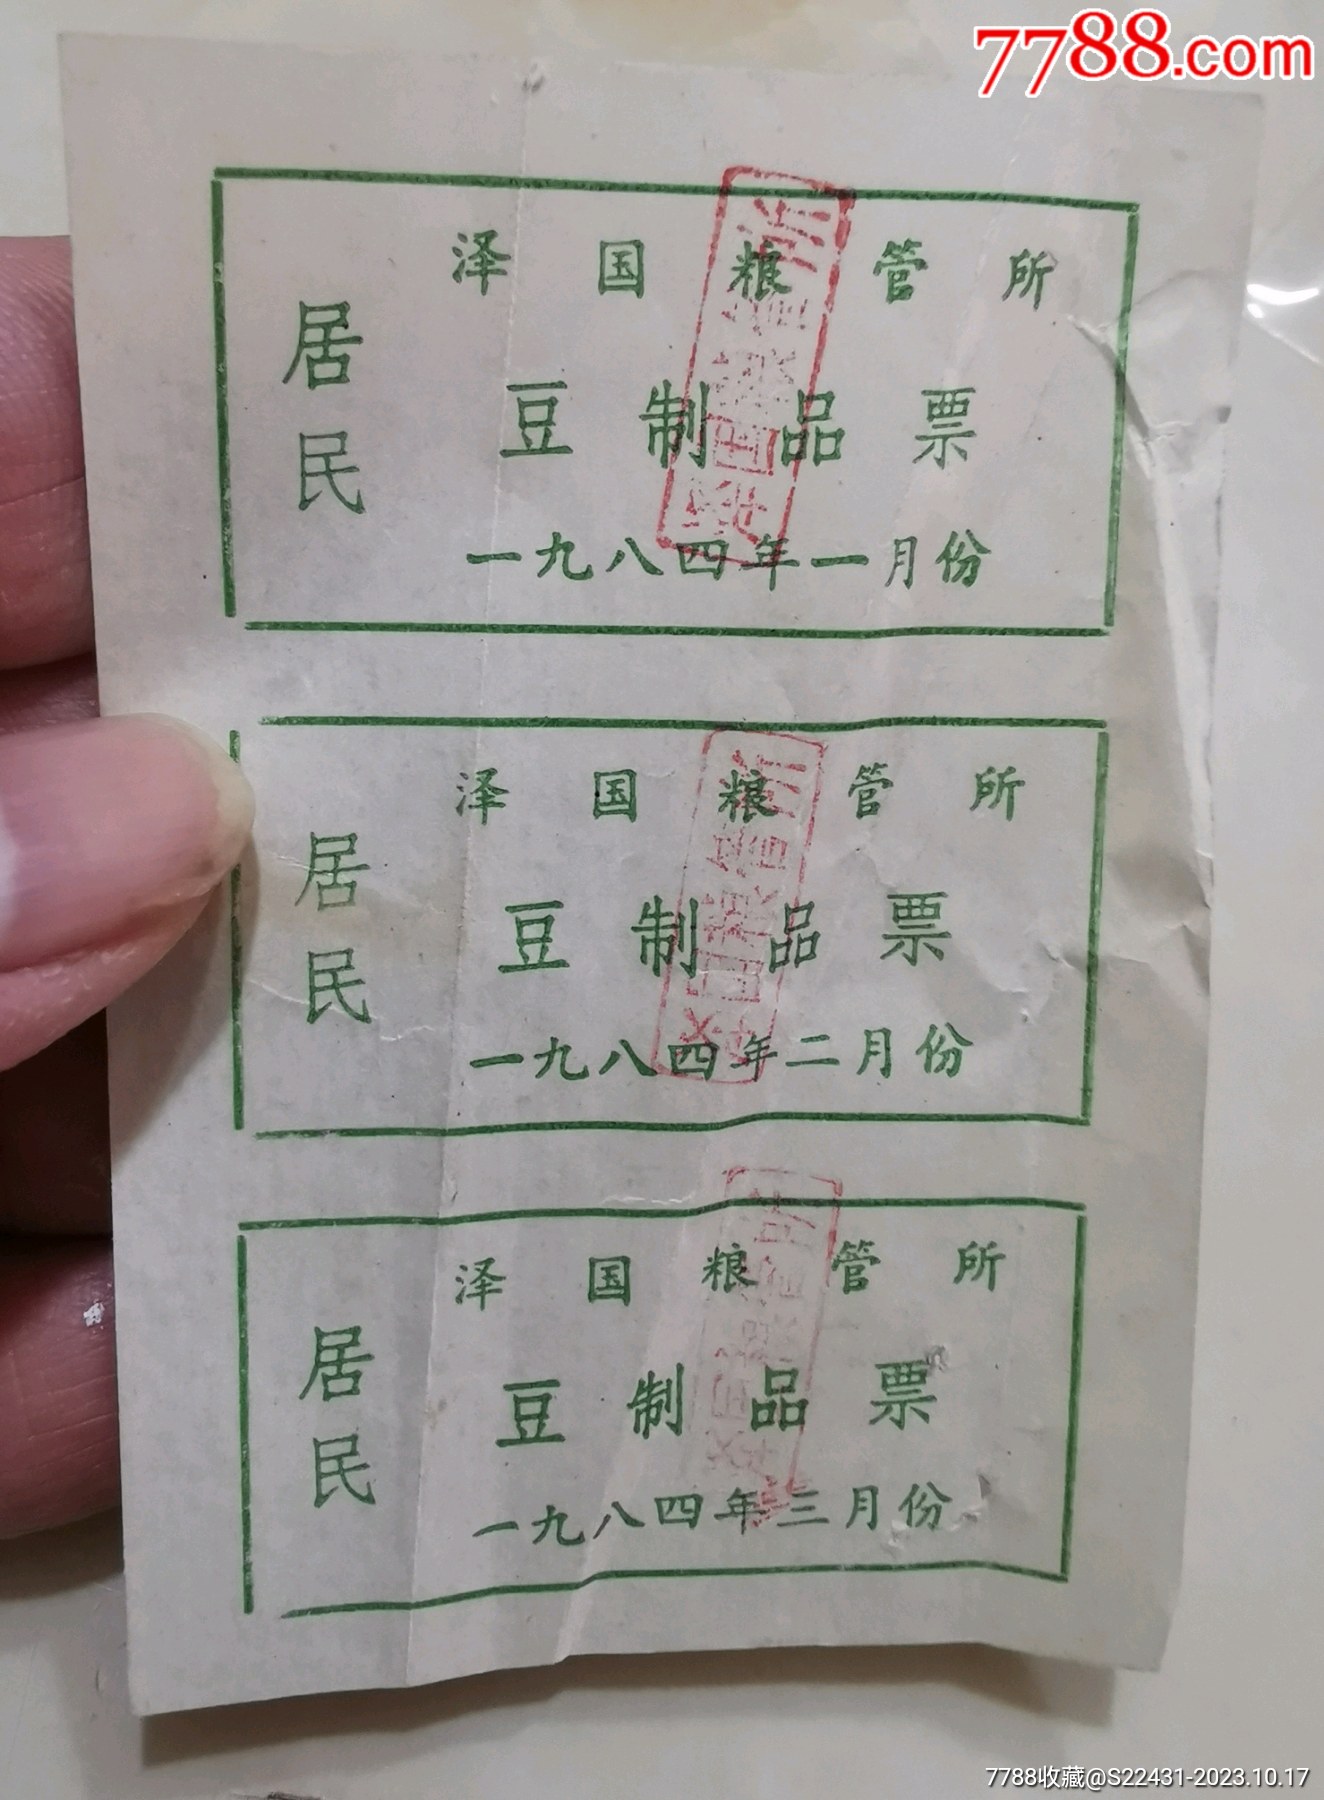 7788.com
泽国粮管所
居民
豆制品票
一九八四年一月份
泽国粮管所
居民
豆制品票
一九八四年二月份
泽国粮管所
居民
豆制品票
一九八四年三月份
7788收藏@S22431-2023.10.17